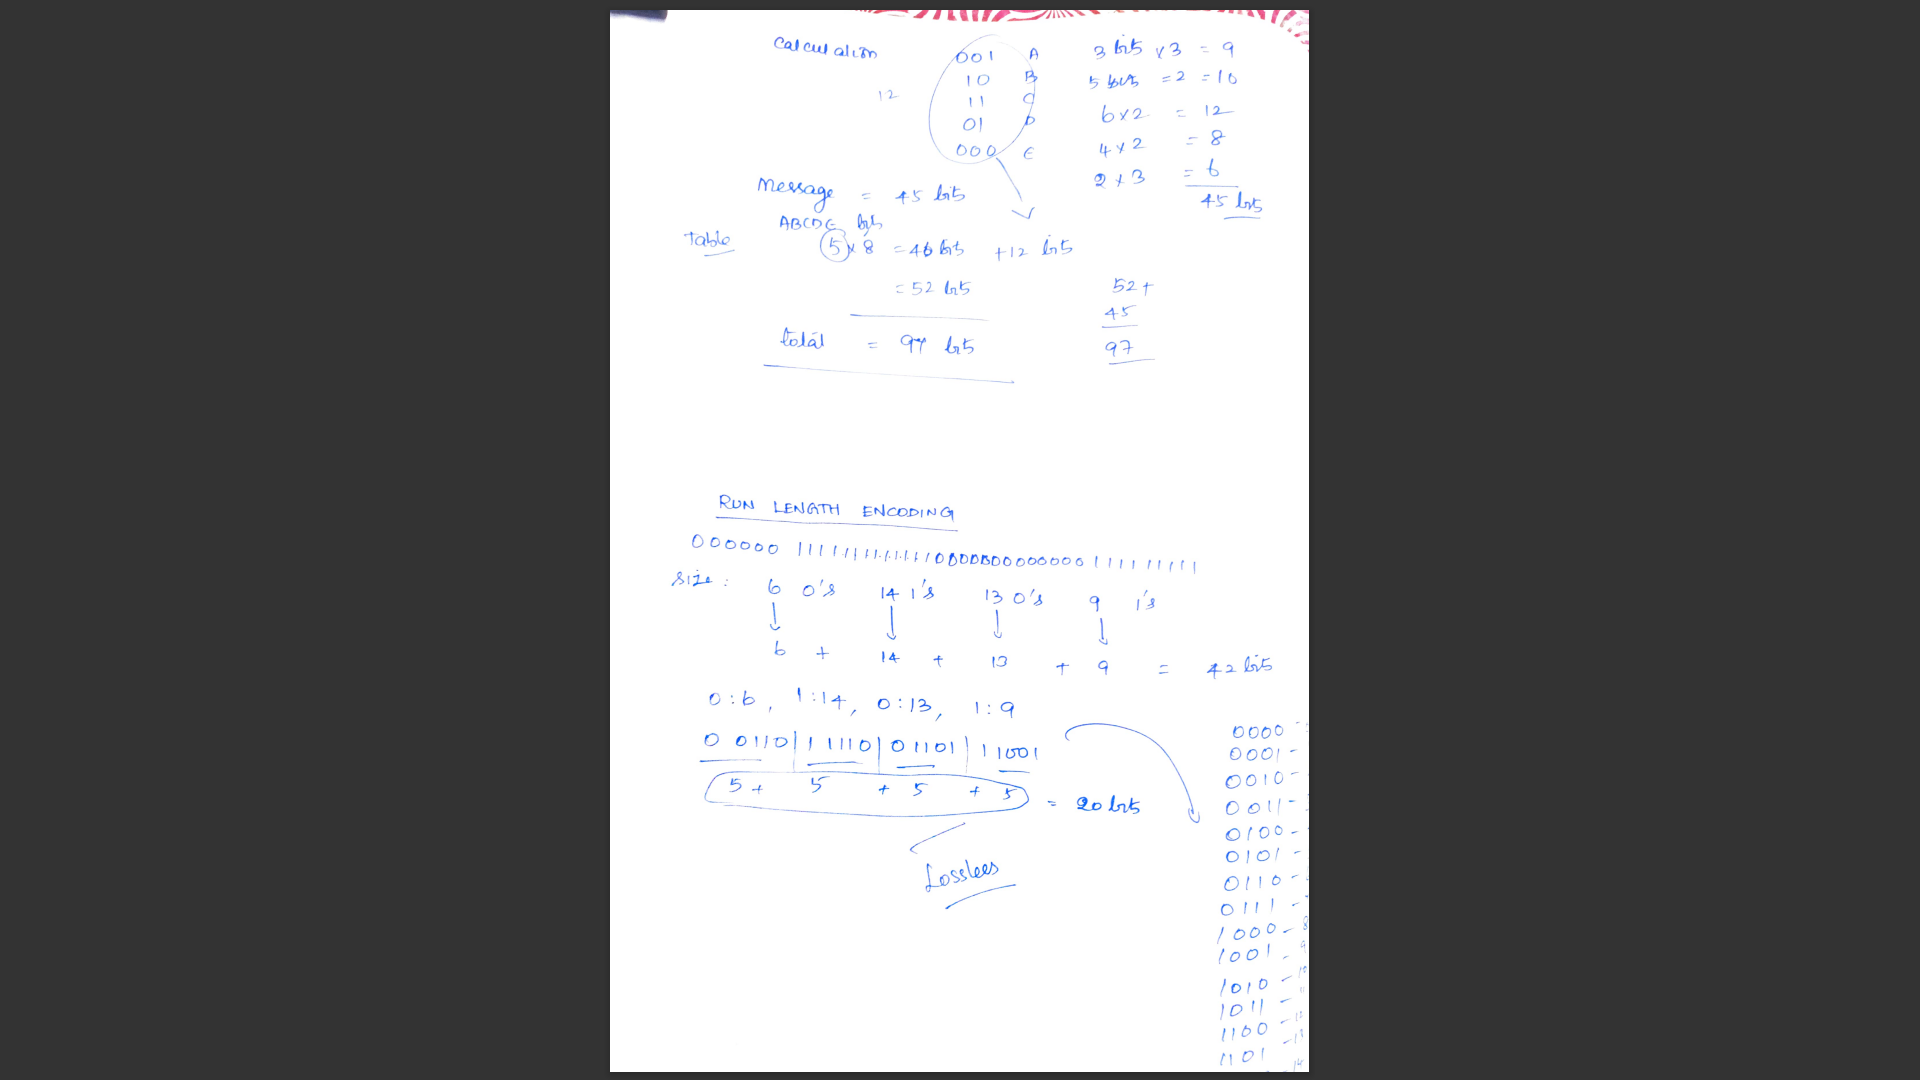 Calculation 001 A 3 bits x 3 = 9
10 B 5 bits = 2 = 10
12 11 C 6 x 2 = 12
01 D 4 x 2 = 8
000 E 2 x 3 = 6
Message = 45 bits 45 bits
ABCDE bits
Table 5 x 8 = 40 bits + 12 bits
= 52 bits 52 +
45
total = 97 bits 97
RUN LENGTH ENCODING
000000 11111111111111 0000000000000 111111111
Size : 6 0's 14 1's 13 0's 9 1's
6 + 14 + 13 + 9 = 42 bits
0:6, 1:14, 0:13, 1:9
0 0110 | 1 1110 | 0 1101 | 1 1001
5 + 5 + 5 + 5 = 20 bits
Losslees
0000 -
0001 -
0010 -
0011 -
0100 -
0101 -
0110 -
0111 -
1000 - 8
1001 - 9
1010 - 10
1011 - 11
1100 - 12
1101 - 13
14